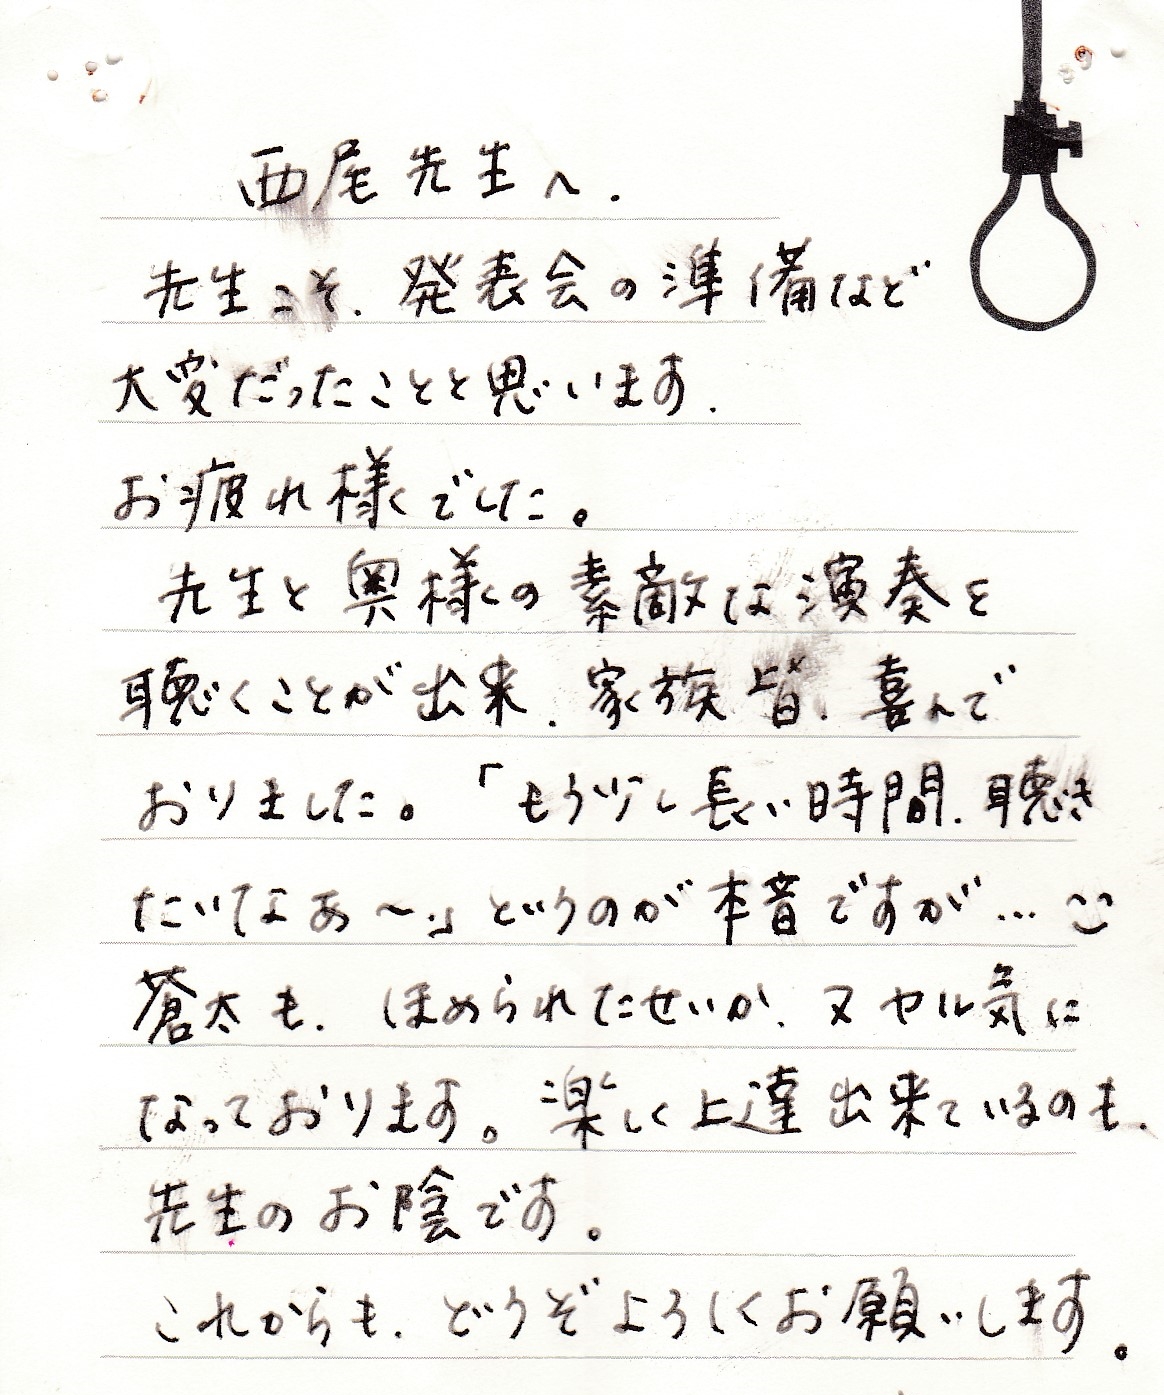 西尾先生へ.
先生こそ、発表会の準備など
大変だったことと思います.
お疲れ様でした。
先生と奥様の素敵な演奏を
聴くことが出来、家族皆、喜んで
おりました。「もう少し長い時間、聴き
たいなあ～」というのが本音ですが…
蒼太も、ほめられたせいか、又ヤル気に
なっております。楽しく上達出来ているのも、
先生のお陰です。
これからも、どうぞよろしくお願いします。